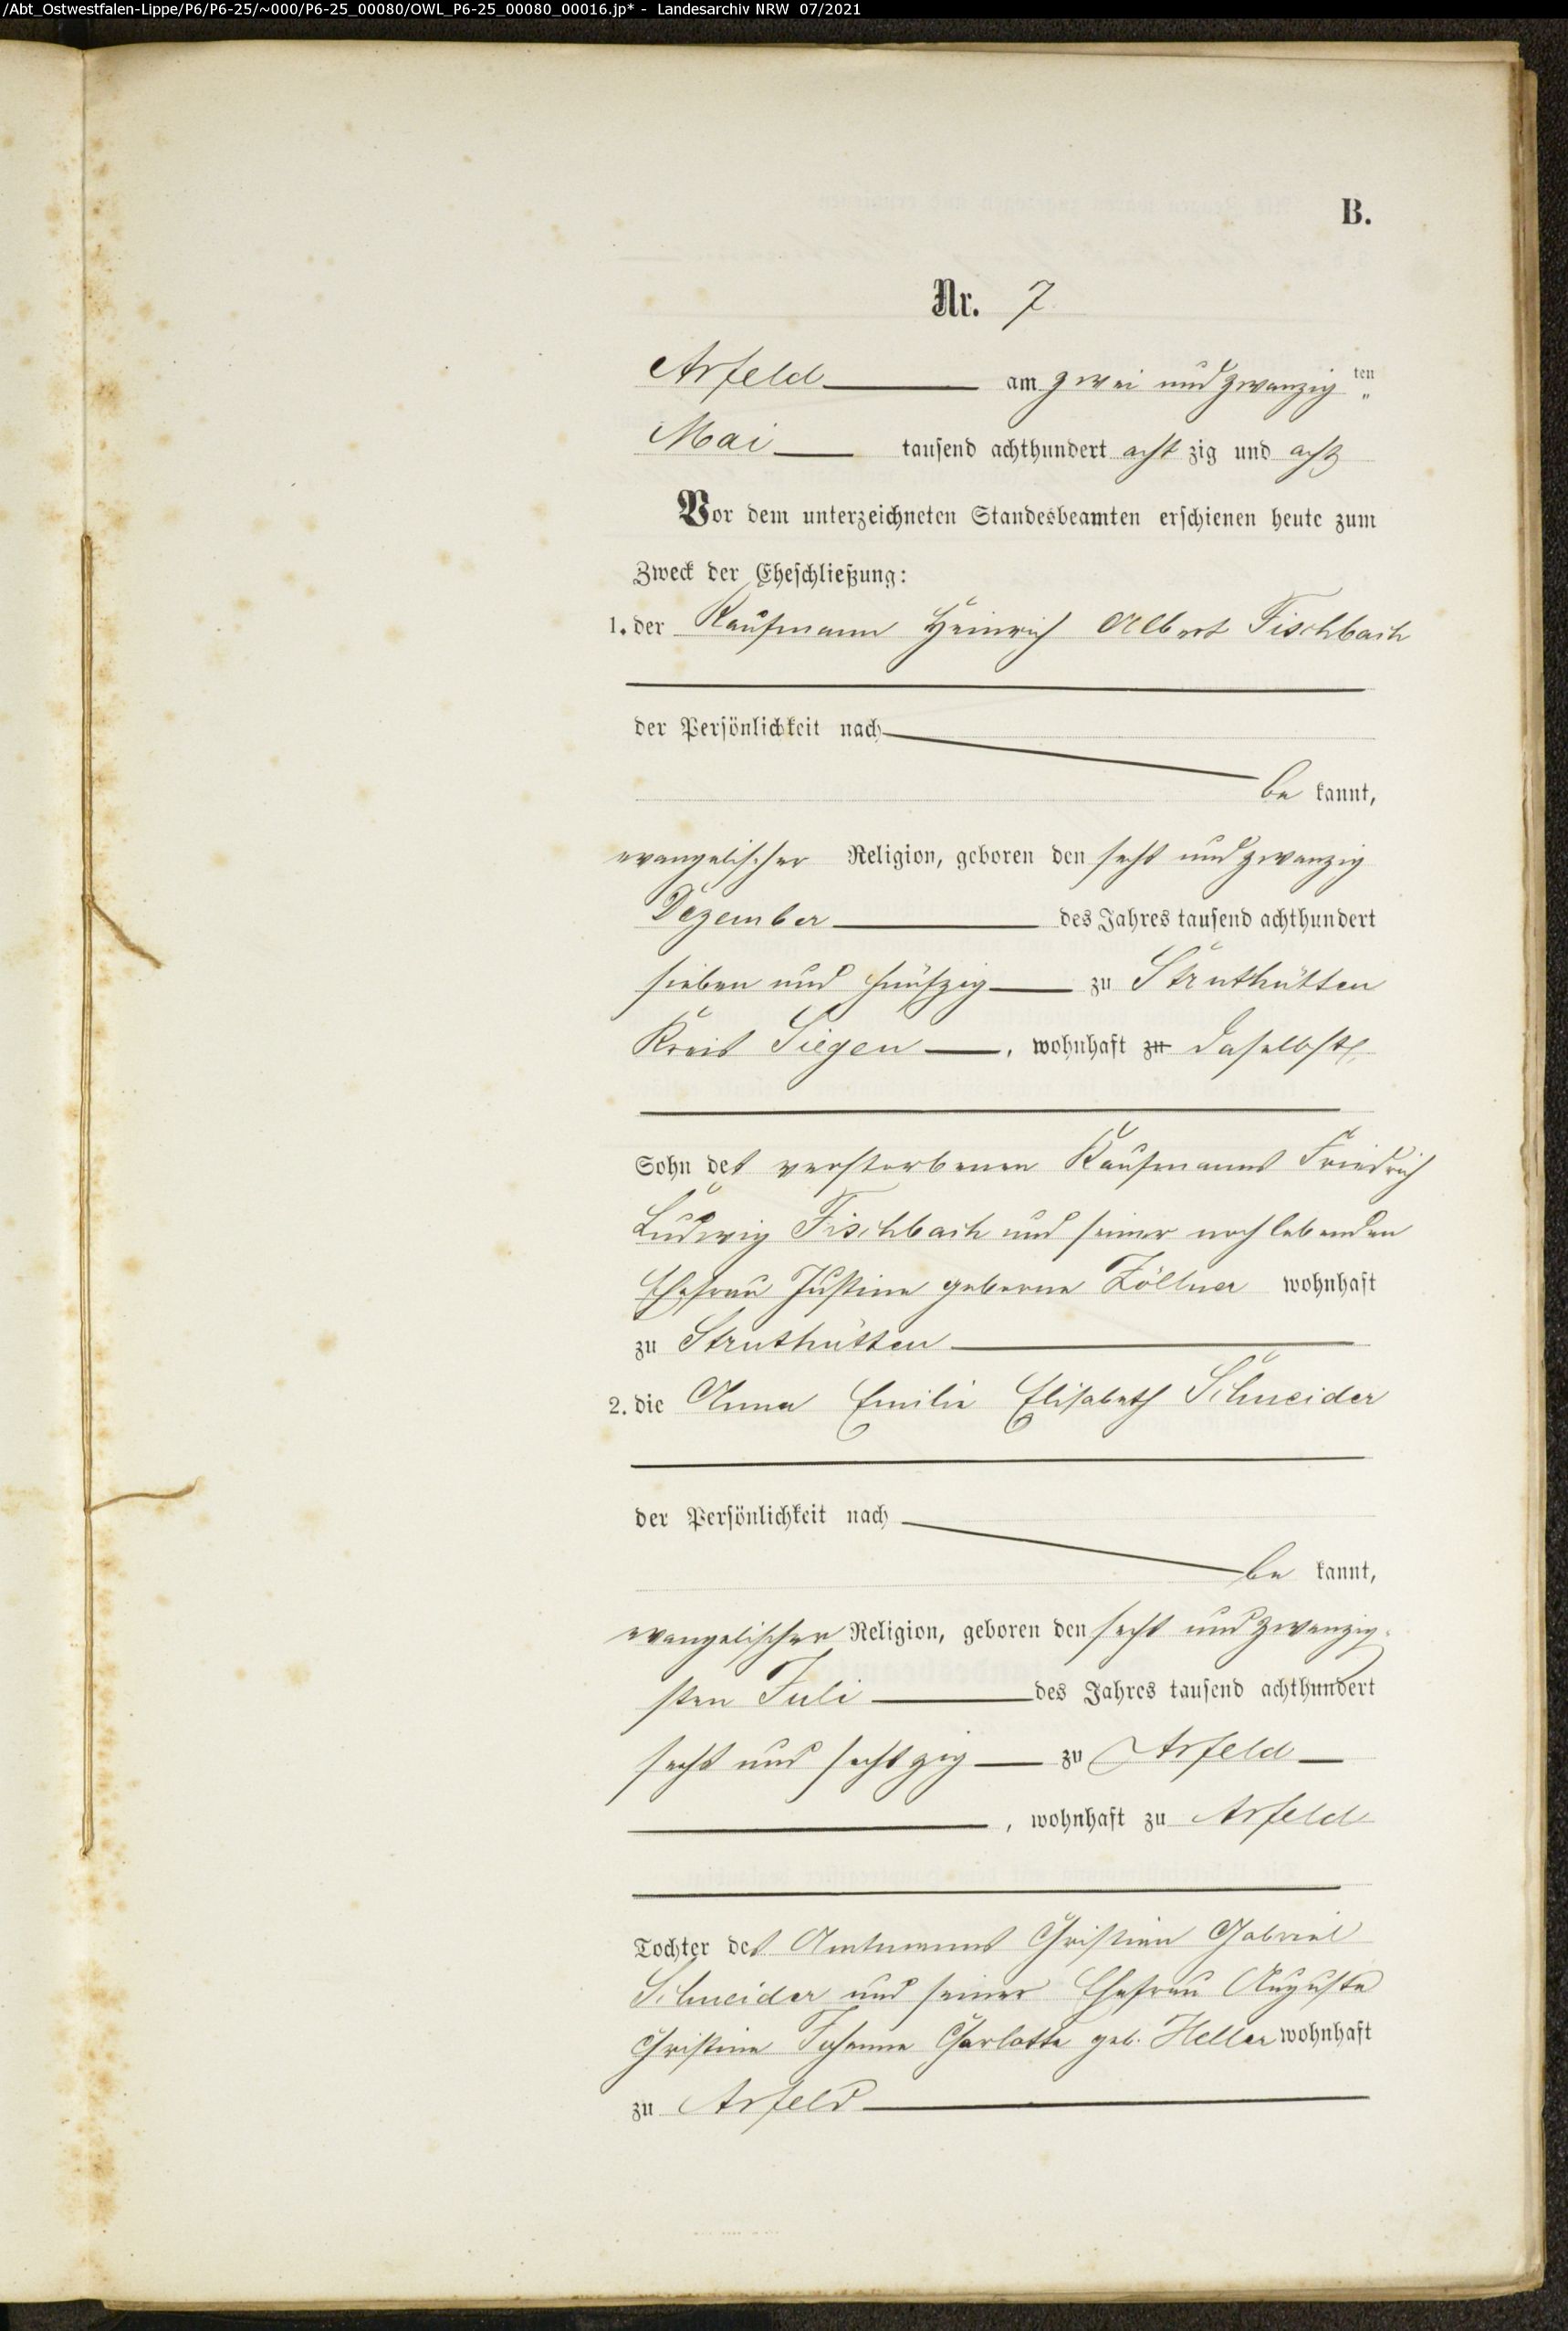 /Abt_Ostwestfalen-Lippe/P6/P6-25/~000/P6-25_00080/OWL_P6-25_00080_00016.jp* - Landesarchiv NRW 07/2021
B.
Nr. 7
Arfeld am zwei und zwanzig ten
Mai tausend achthundert acht zig und acht
Vor dem unterzeichneten Standesbeamten erschienen heute zum
Zweck der Eheschließung:
1. der Kaufmann Heinrich Albert Fischbach
der Persönlichkeit nach
be kannt,
evangelischer Religion, geboren den sechs und zwanzig
Dezember des Jahres tausend achthundert
sieben und fünfzig zu Struthütten
Kreis Siegen, wohnhaft zu daselbst
Sohn des verstorbenen Kaufmanns Friedrich
Ludwig Fischbach und seiner noch lebenden
Ehefrau Justine geborne Zöllner wohnhaft
zu Struthütten
2. die Anna Emilie Elisabeth Schneider
der Persönlichkeit nach
be kannt,
evangelischer Religion, geboren den sechs und zwanzig-
sten Juli des Jahres tausend achthundert
sechs und sechszig zu Arfeld
, wohnhaft zu Arfeld
Tochter des Amtmanns Christian Gabriel
Schneider und seiner Ehefrau Auguste
Christine Johanne Charlotte geb. Heller wohnhaft
zu Arfeld